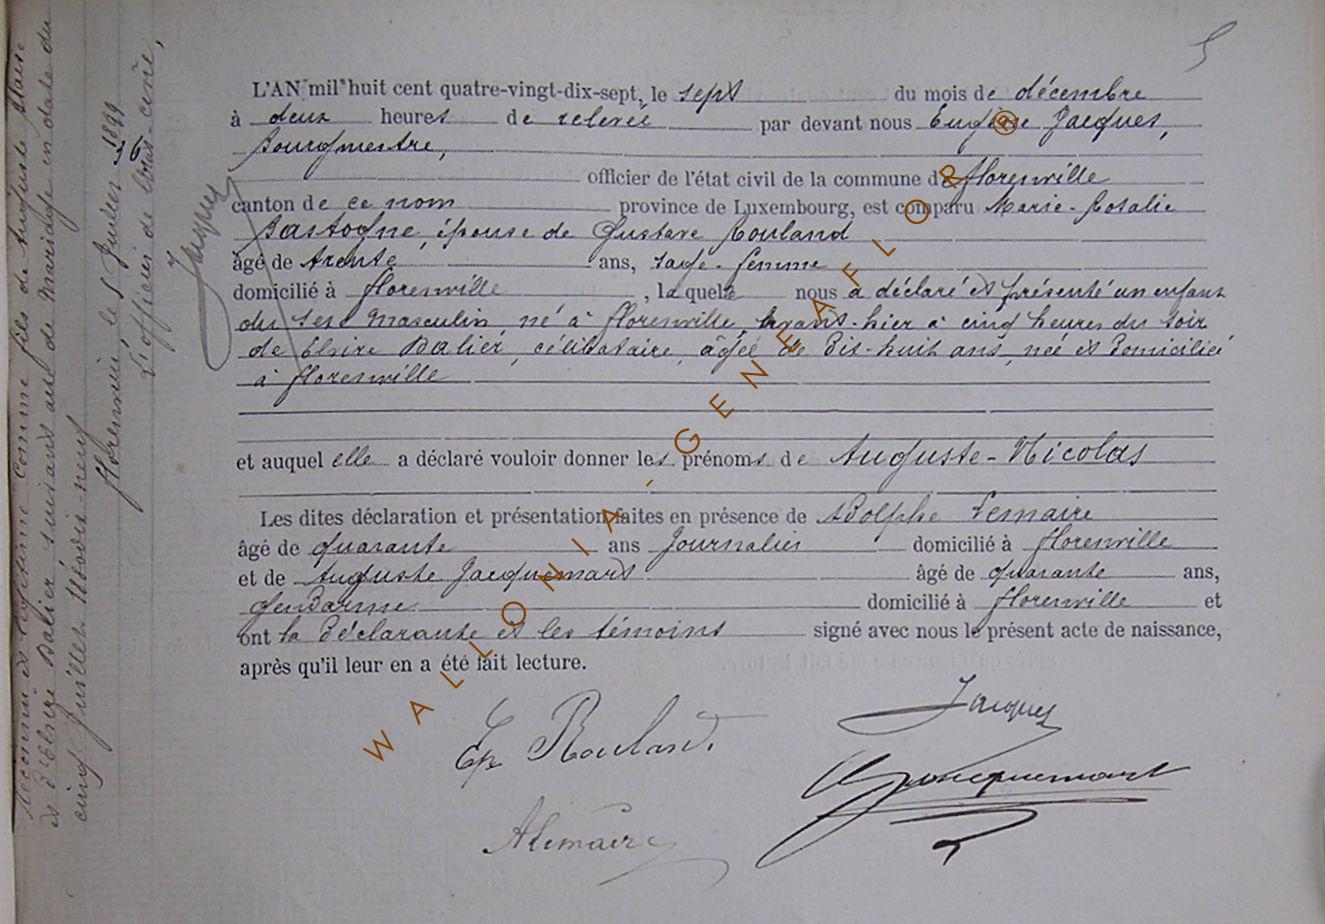 5
L'AN mil huit cent quatre-vingt-dix-sept, le sept du mois de décembre
à deux heures de relevée par devant nous Eugène Jacques,
Bourgmestre,
officier de l'état civil de la commune de Florenville
canton de ce nom province de Luxembourg, est comparu Marie-Rosalie
Bastogne, épouse de Gustave Rouland
âgé de trente ans, sage-femme
domicilié à Florenville, laquelle nous a déclaré et présenté un enfant
du sexe masculin, né à Florenville, avant-hier à cinq heures du soir
de Elvire Dalier, célibataire, âgée de dix-huit ans, née et domiciliée
à Florenville
et auquel elle a déclaré vouloir donner les prénoms de Auguste-Nicolas
Les dites déclaration et présentation faites en présence de Adolphe Lemaire
âgé de quarante ans Journalier domicilié à Florenville
et de Auguste Jacquemart âgé de quarante ans,
gendarme domicilié à Florenville et
ont la déclarante et les témoins signé avec nous le présent acte de naissance,
après qu'il leur en a été fait lecture.
Ep Rouland.
Jacques
Jacquemart
A Lemaire
Reconnu et légitimé comme fils de Auguste
et d'Elvire Dalier suivant acte de mariage en date du
cinq Juillet
Florenville, le 5 Juillet 1899
L'officier de l'état-civil,
Jacques
WALLONIA-GENEAFLOR®